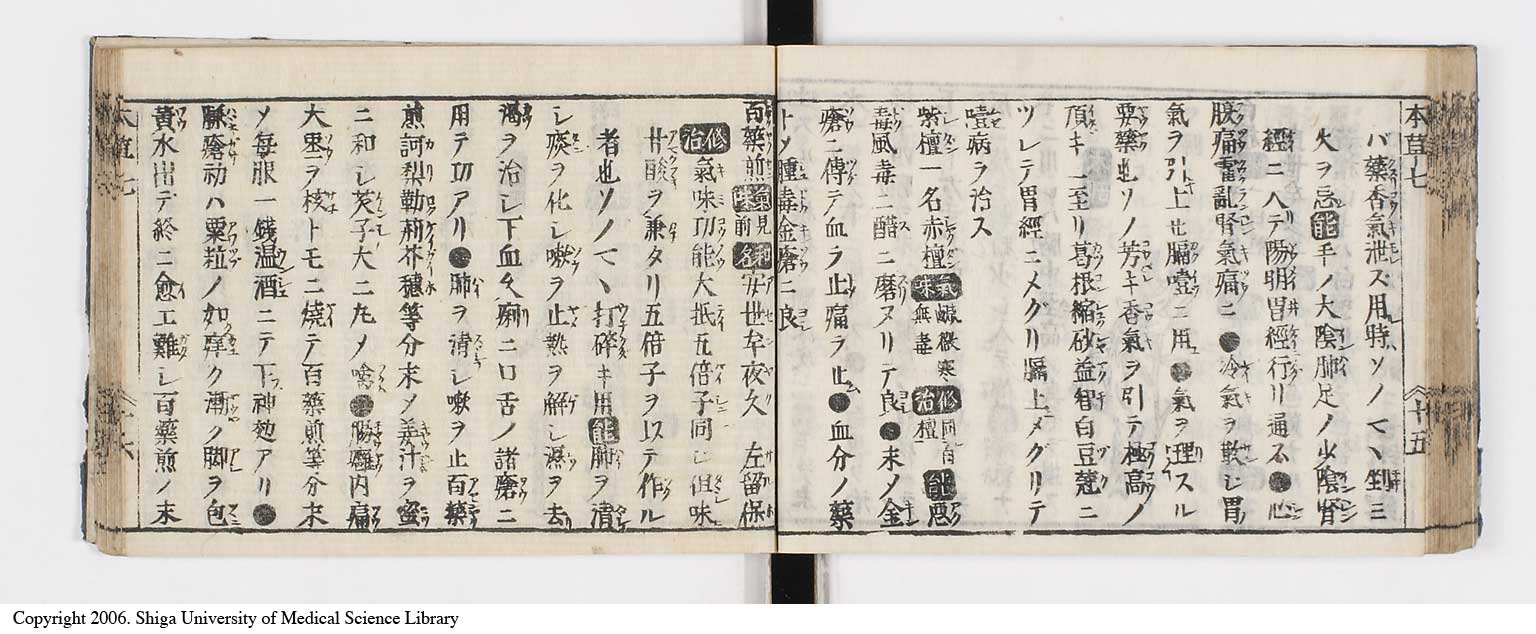 本草七　十五
バ藥香氣泄ス用時ソノマヽ剉ミ
火ヲ忌 能 手ノ大陰肺足ノ少陰腎
經ニ入テ陽明胃經行リ通ス●心
腹痛霍亂腎氣痛ニ●冷氣ヲ散シ胃
氣ヲ引上セ膈噎ニ用●氣ヲ理スル
要藥也ソノ芳キ香氣ヲ引テ極高ノ
頂キニ至リ葛根縮砂益智白豆蔲ニ
ツレテ胃經ニメグリ膈上メグリテ
噎病ヲ治ス
紫檀一名赤檀 氣味 鹹微寒無毒 修治 同白檀 能 惡
毒風毒ニ醋ニ磨ヌリテ良●末メ金
瘡ニ傳テ血ヲ止痛ヲ止ム●血分ノ藥
トメ腫毒金瘡ニ良
百藥煎 氣味 見前 和名 安世牟夜久　左留保
修治 氣味功能大抵五倍子同シ但味
甘酸ヲ兼タリ五倍子ヲ上ステ作ル
者也ソノマヽ打碎キ用 能 肺ヲ清
シ痰ヲ化シ嗽ヲ止熱ヲ解シ濕ヲ去
渇ヲ治シ下血久痢ニ口舌ノ諸瘡ニ
用テ功アリ●肺ヲ清シ嗽ヲ止百藥
煎訶梨勒荊芥穗等分末メ姜汁ヲ蜜
ニ和シ芡子大ニ丸メ噙●腸癰内痛
大棗ヲ核トモニ燒テ百藥煎等分末
ソ毎服一錢温酒ニテ下神効アリ●
臁瘡初ハ粟粒ノ如痒ク漸ク脚ヲ包
黄水出テ終ニ愈エ難シ百藥煎ノ末
Copyright 2006. Shiga University of Medical Science Library